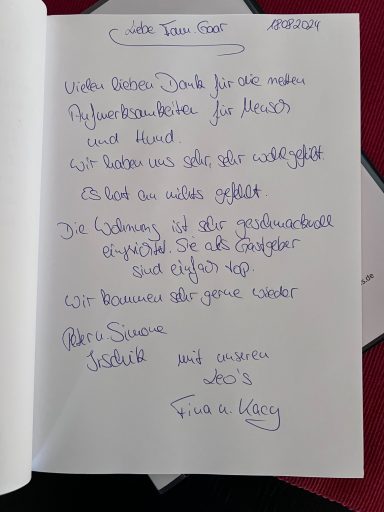 Liebe Fam. Gaar 18082024
Vielen lieben Dank für die netten
Aufmerksamkeiten für Mensch
und Hund.
Wir haben uns sehr, sehr wohlgefühlt.
Es hat an nichts gefehlt.
Die Wohnung ist sehr geschmackvoll
eingerichtet. Sie als Gastgeber
sind einfach top.
Wir kommen sehr gerne wieder
Peter u. Simone
Irschik mit unseren
Leo's
Fina u. Kacy
s.de